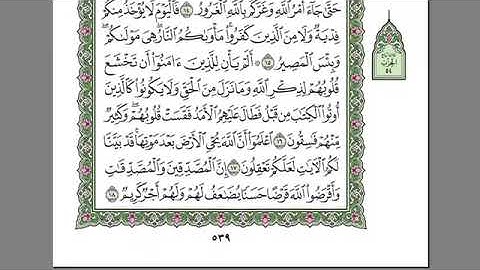 حَتَّىٰ جَآءَ أَمْرُ ٱللَّهِ وَغَرَّكُم بِٱللَّهِ ٱلْغَرُورُ ١٤ فَٱلْيَوْمَ لَا يُؤْخَذُ مِنكُمْ
فِدْيَةٌ وَلَا مِنَ ٱلَّذِينَ كَفَرُوا۟ مَأْوَىٰكُمُ ٱلنَّارُ هِىَ مَوْلَىٰكُمْ
وَبِئْسَ ٱلْمَصِيرُ ١٥ ۞ أَلَمْ يَأْنِ لِلَّذِينَ ءَامَنُوٓا۟ أَن تَخْشَعَ
قُلُوبُهُمْ لِذِكْرِ ٱللَّهِ وَمَا نَزَلَ مِنَ ٱلْحَقِّ وَلَا يَكُونُوا۟ كَٱلَّذِينَ
أُوتُوا۟ ٱلْكِتَٰبَ مِن قَبْلُ فَطَالَ عَلَيْهِمُ ٱلْأَمَدُ فَقَسَتْ قُلُوبُهُمْ وَكَثِيرٌ
مِّنْهُمْ فَٰسِقُونَ ١٦ ٱعْلَمُوٓا۟ أَنَّ ٱللَّهَ يُحْىِ ٱلْأَرْضَ بَعْدَ مَوْتِهَا قَدْ بَيَّنَّا
لَكُمُ ٱلْءَايَٰتِ لَعَلَّكُمْ تَعْقِلُونَ ١٧ إِنَّ ٱلْمُصَّدِّقِينَ وَٱلْمُصَّدِّقَٰتِ
وَأَقْرَضُوا۟ ٱللَّهَ قَرْضًا حَسَنًا يُضَٰعَفُ لَهُمْ وَلَهُمْ أَجْرٌ كَرِيمٌ ١٨
٥٣٩
الحزب
٥٤